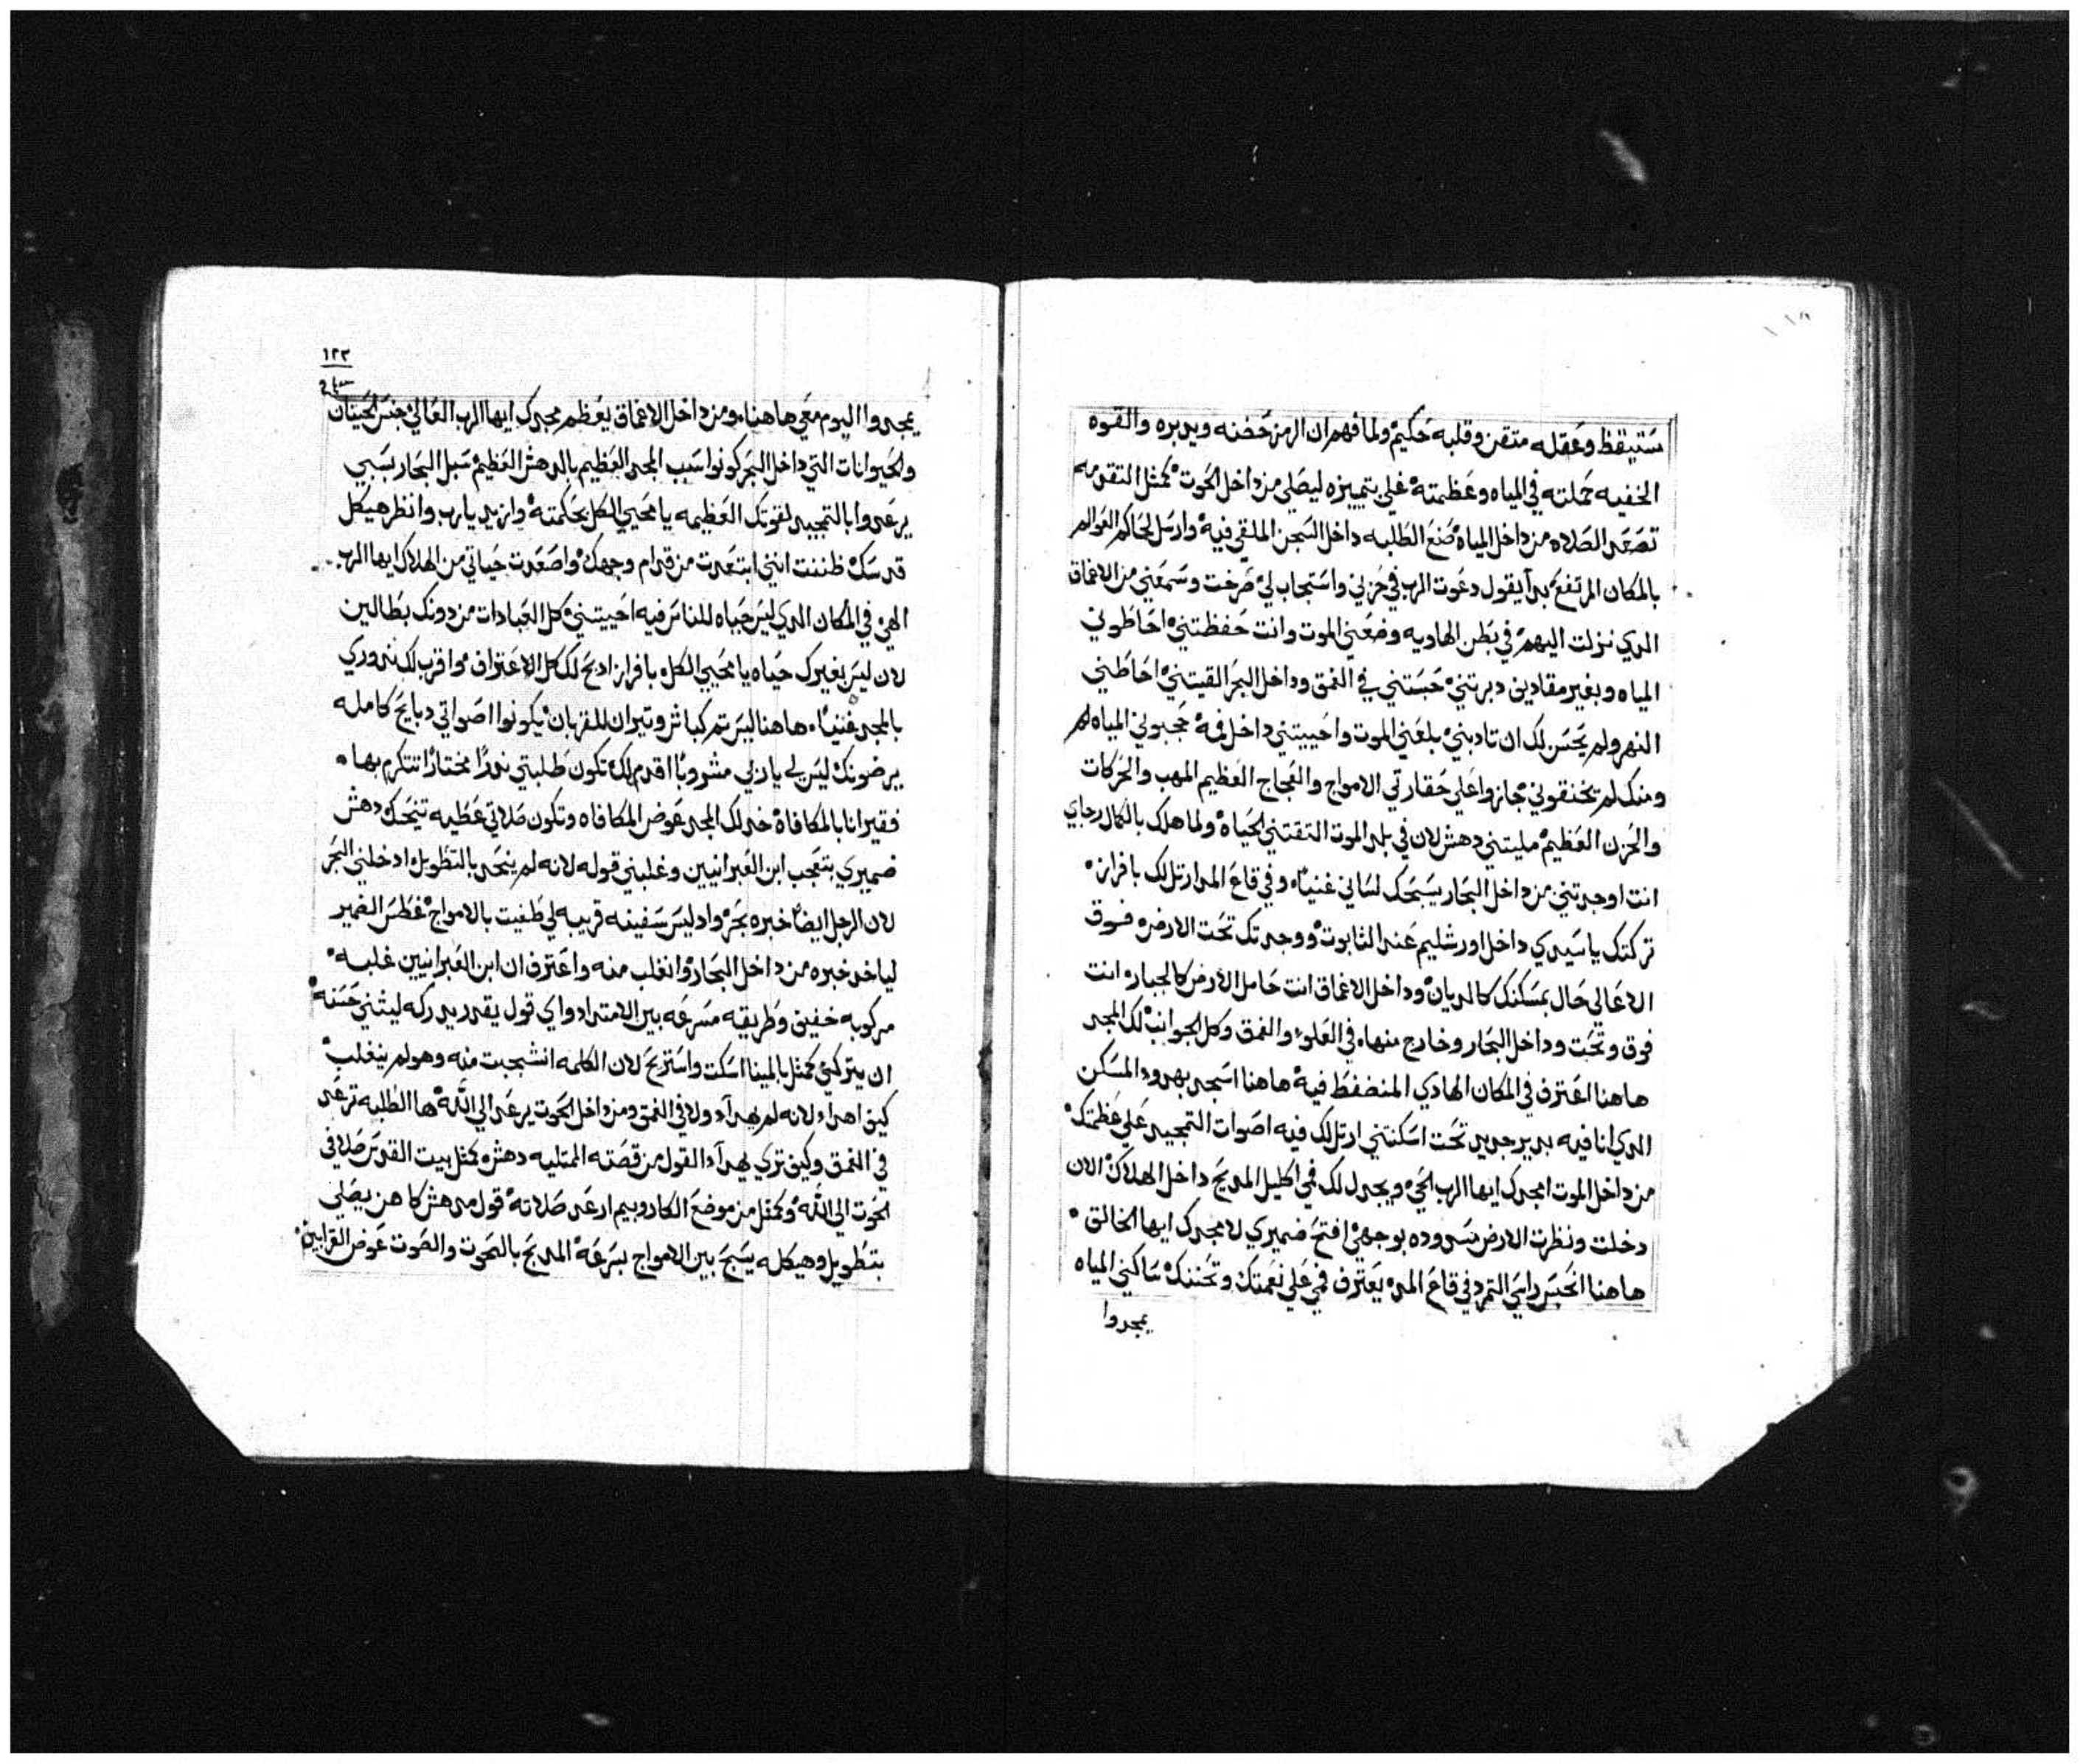 ستيقظ وعقله متقن وقلبه حكيم ولما فهم ان الرمز حضنه ويدبره والقوه
الخفيه حملته في المياه وعظمته علي بتمييزه ليصلي من داخل الحوت كمثل التقومه
تصعد الصلاه من داخل المياه صنع الطلبه داخل السجن الملقي فيه وارسل لحاكم العوالم
بالمكان المرتفع بدآ يقول دعوت الرب في حزني واستجاب لي صرخت وسمعني من الاعماق
الدي نزلت اليهم في بطن الهاويه وضعني الموت وانت حفظتني احاطوني
المياه وبغير مقادين دبرتني حبستني في الغمق وداخل البحر القيتني احاطني
النهر ولم يحسن لك ان تادبني بلعني الموت واحييتني داخل فمه حجبوني المياه لم
ومنك لم يخنقوني جازوا علي حقارتي الامواج والعجاج العظيم المهب والحركات
والحزن العظيم مليتني دهش لان في بلد الموت التقتني الحياه ولما هلك بالكمال رجاي
انت اوجدتني من داخل البحار يسبحك لساني غنياً وفي قاع المدا رتل لك بافراز
تركتك يا سيدي داخل اورشليم عند التابوت ووجدتك تحت الارض فوق
الاعالي حال بمسكنك كالديان وداخل الاعماق انت حامل الارض كالجبار انت
فوق وتحت وداخل البحار وخارج منها في العلو والغمق وكل الجوانب لك المجد
هاهنا اعترف في المكان الهادي المنضغط فيه هاهنا اسجد بهدو المسكن
الدي انا فيه بدير جديد تحت اسكنتني ارتل لك فيه اصوات التمجيد علي عظمتك
من داخل الموت امجدك ايها الرب الحي ويجدل لك فمي اكليل المديح داخل الهلاك الان
دخلت ونظرت الارض مسدوده بوجهي افتح ضميري لامجدك ايها الخالق
هاهنا انحبس راسي التمرد في قاع المد يعترف فمي علي نعمتك وتحننك ساكني المياه
يمجدوا
١٢٣
يمجدوا اليوم معي هاهنا ومن داخل الاعماق يعظم مجدك ايها الرب العالي جنس الحيتان
والحيوانات التي داخل البحر كونوا سبب المجد العظيم بالدهش العظيم سبل البحار بسببي
يرعدوا بالتمجيد لقوتك العظيمه يا محيي الكل بحكمته وازيد يارب وانظر هيكل
قدسك ظننت انني ابتعدت من قدام وجهك واصعدت حياتي من الهلاك ايها الرب
الهي في المكان الدي ليس حياه للناس فيه احييتني كل العبادات من دونك بطالين
لان ليس بغيرك حياه يا محيي الكل بافراز ادبح لك كل الاعتراف واقرب لك نذوري
بالمجد غنياً هاهنا ليس تم كباش وتيران للقربان يكونوا اصواتي دبايح كامله
يرضونك ليس لي يا ربي مشروبا اقدم لك تكون طلبتي نذرا مختارا تتكرم بها
فقير انا بالمكافاة خد لك المجد عوض المكافاه وتكون صلاتي عطيه تنيحك دهش
ضميري بتعجب ابن العبرانيين وغلبني قوله لانه لم ينحد بالتطويل ادخلني البحر
لان الرجل ايضا خبره بحر واد ليس سفينه قريبه لي طغيت بالامواج غطس الضمير
لياخد خبره من داخل البحار وانغلب منه واعترف ان ابن العبرانيين غلبه
مركوبه خفيف وطريقه مسرعه بين الامتداد واي قول يقدر يدركه ليثني حسنه
ان يتركني كمثل بالمينا اسكت واستريح لان الكلمه انشجبت منه وهو لم ينغلب
كيف اهدا لانه لم يهدآ ولا في الغمق ومن داخل الحوت يرعد الي الله ها الطلبه ترعد
في الغمق وكيف تري يهدآ القول من قصته المتليه دهش كمثل بيت القدس صلا في
الحوت الي الله وكمثل من موضع الكاروبيم ارعد صلاته قول مدهش كاهن يصلي
بتطويل وهيكله يسبح بين الامواج بسرعه المديح بالحوت والصوت عوض القرابين